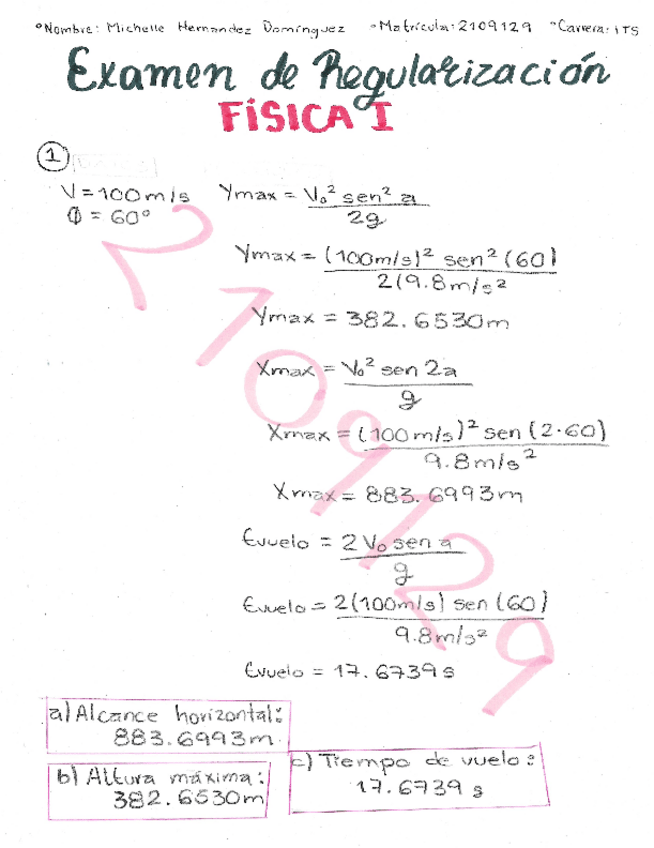 °Nombre: Michelle Hernandez Domínguez °Matrícula: 2109129 °Carrera: ITS
Examen de Regularización
FÍSICA I
1
V = 100 m/s Ymax = V₀² sen² a
Φ = 60° 2g
Ymax = (100m/s)² sen² (60)
2(9.8m/s²
Ymax = 382.6530m
Xmax = V₀² sen 2a
g
Xmax = (100 m/s)² sen (2·60)
9.8m/s²
Xmax = 883.6993m
tvuelo = 2V₀ sen a
g
tvuelo = 2(100m/s) sen (60)
9.8m/s²
tvuelo = 17.6739 s
2109129
a) Alcance horizontal:
883.6993m.
b) Altura máxima:
382.6530m
c) Tiempo de vuelo:
17.6739 s